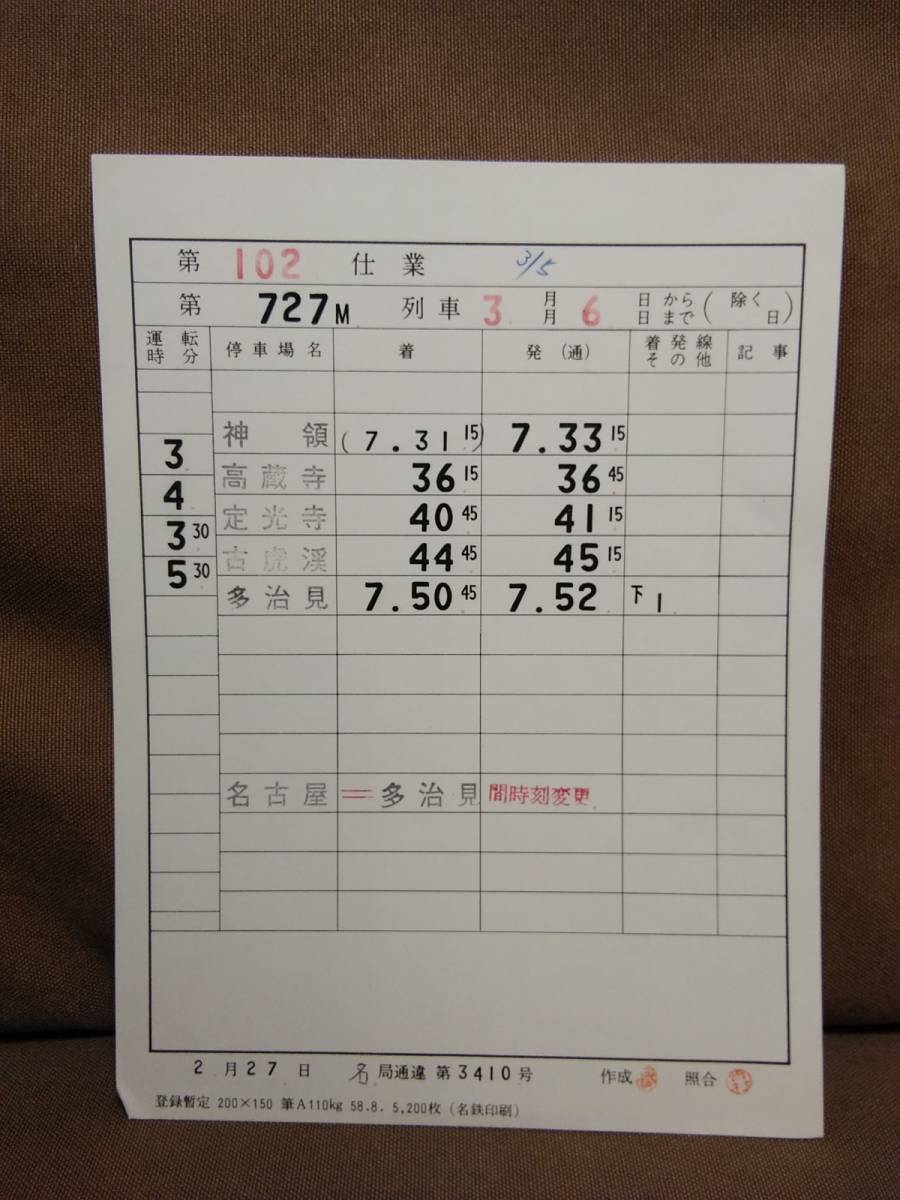 第 102 仕業 3/5
第 727M 列車 3 月月 6 日から日まで(除く日)
運転時分 停車場名 着 発(通) 着発線その他 記事
神領 (7.31 15) 7.33 15
3 高蔵寺 36 15 36 45
4 定光寺 40 45 41 15
3 30 古虎渓 44 45 45 15
5 30 多治見 7.50 45 7.52 下1
名古屋=多治見間時刻変更
2月27日 名局通達 第3410号 作成 照合
登録暫定 200×150 筆A110kg 58.8. 5,200枚(名鉄印刷)